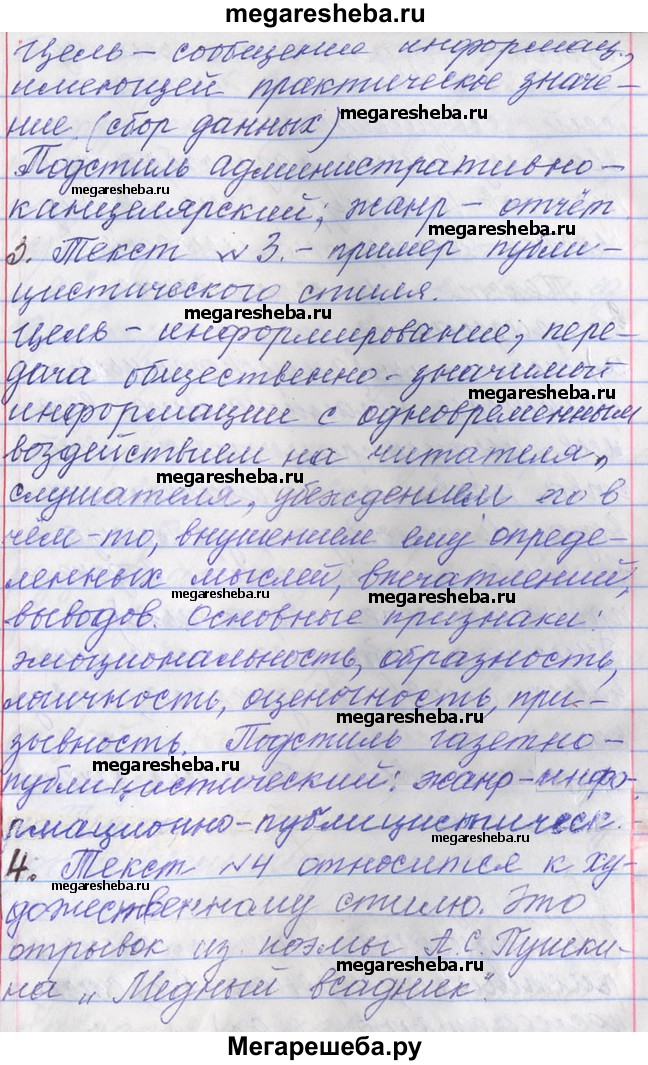 megaresheba.ru
Цель – сообщение информац.,
имеющей практическое значе-
ние (сбор данных)
megaresheba.ru
Подстиль административно-
megaresheba.ru
канцелярский; жанр – отчёт.
3. Текст №3. – пример публи-
цистического стиля.
megaresheba.ru
Цель – информирование, пере-
дача общественно-значимой
megaresheba.ru
информации с одновременным
воздействием на читателя,
megaresheba.ru
слушателя, убеждением его в
чём-то, внушением ему опреде-
ленных мыслей, впечатлений,
megaresheba.ru
megaresheba.ru
выводов. Основные признаки:
эмоциональность, образность,
логичность, оценочность, при-
megaresheba.ru
зывность. Подстиль газетно-
megaresheba.ru
публицистический: жанр – инфо
рмационно-публицистическ.
4. Текст №4 относится к ху-
megaresheba.ru
megaresheba.ru
дожественному стилю. Это
отрывок из поэмы А.С. Пушки-
megaresheba.ru
на „Медный всадник".
Мегарешеба.ру